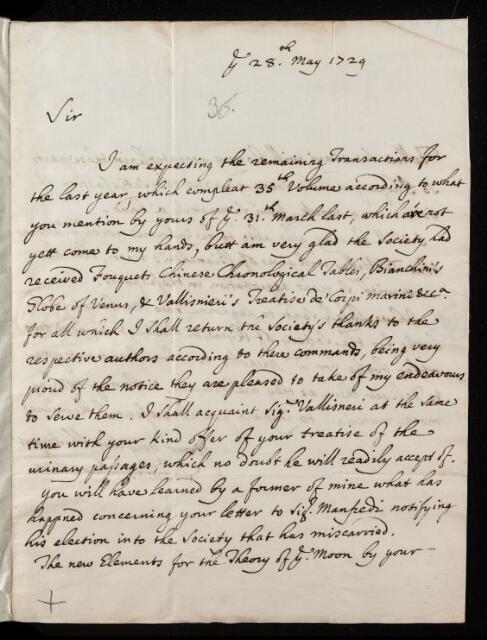 yͤ 28.th May 1729
36.
Sir
I am expecting the remaining Transactions for
the last year, which compleat 35th Volume according to what
you mention by yours of yͤ. 31.th March last, which are not
yett come to my hands, butt am very glad the Society had
received Fouquets Chinese Chronological Tables, Bianchini's
Globe of Venus, & Vallisnieri's Treatise de' Corpi marini &cª.
for all which I shall return the Society's thanks to the
respective authors according to there commands, being very
proud of the notice they are pleased to take of my endeavours
to serve them. I shall acquaint Sigʳ. Vallisneri at the same
time with your kind offer of your treatise of the
urinary passages, which no doubt he will readily accept of.
you will have learned by a former of mine what has
happned concerning your letter to Sigʳ. Manfredi notifying
his election into the Society that has miscarried.
The new Elements for the Theory of yͤ. Moon by your –